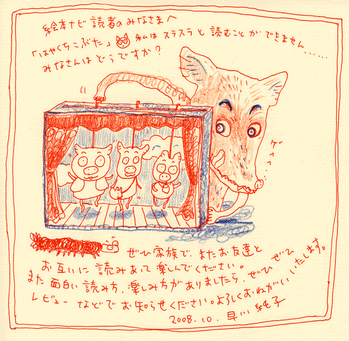 絵本ナビ読者のみなさまへ
「はやくちこぶた」私はスラスラと読むことができません......
みなさんはどうですか?
ゲヘヘ...
ぜひ家族で、またお友達と
お互いに読みあって楽しんでください。
また面白い読み方、楽しみ方がありましたら、ぜひぜひ
レビューなどでお知らせください。よろしくおねがいいたします。
2008.10. 早川純子